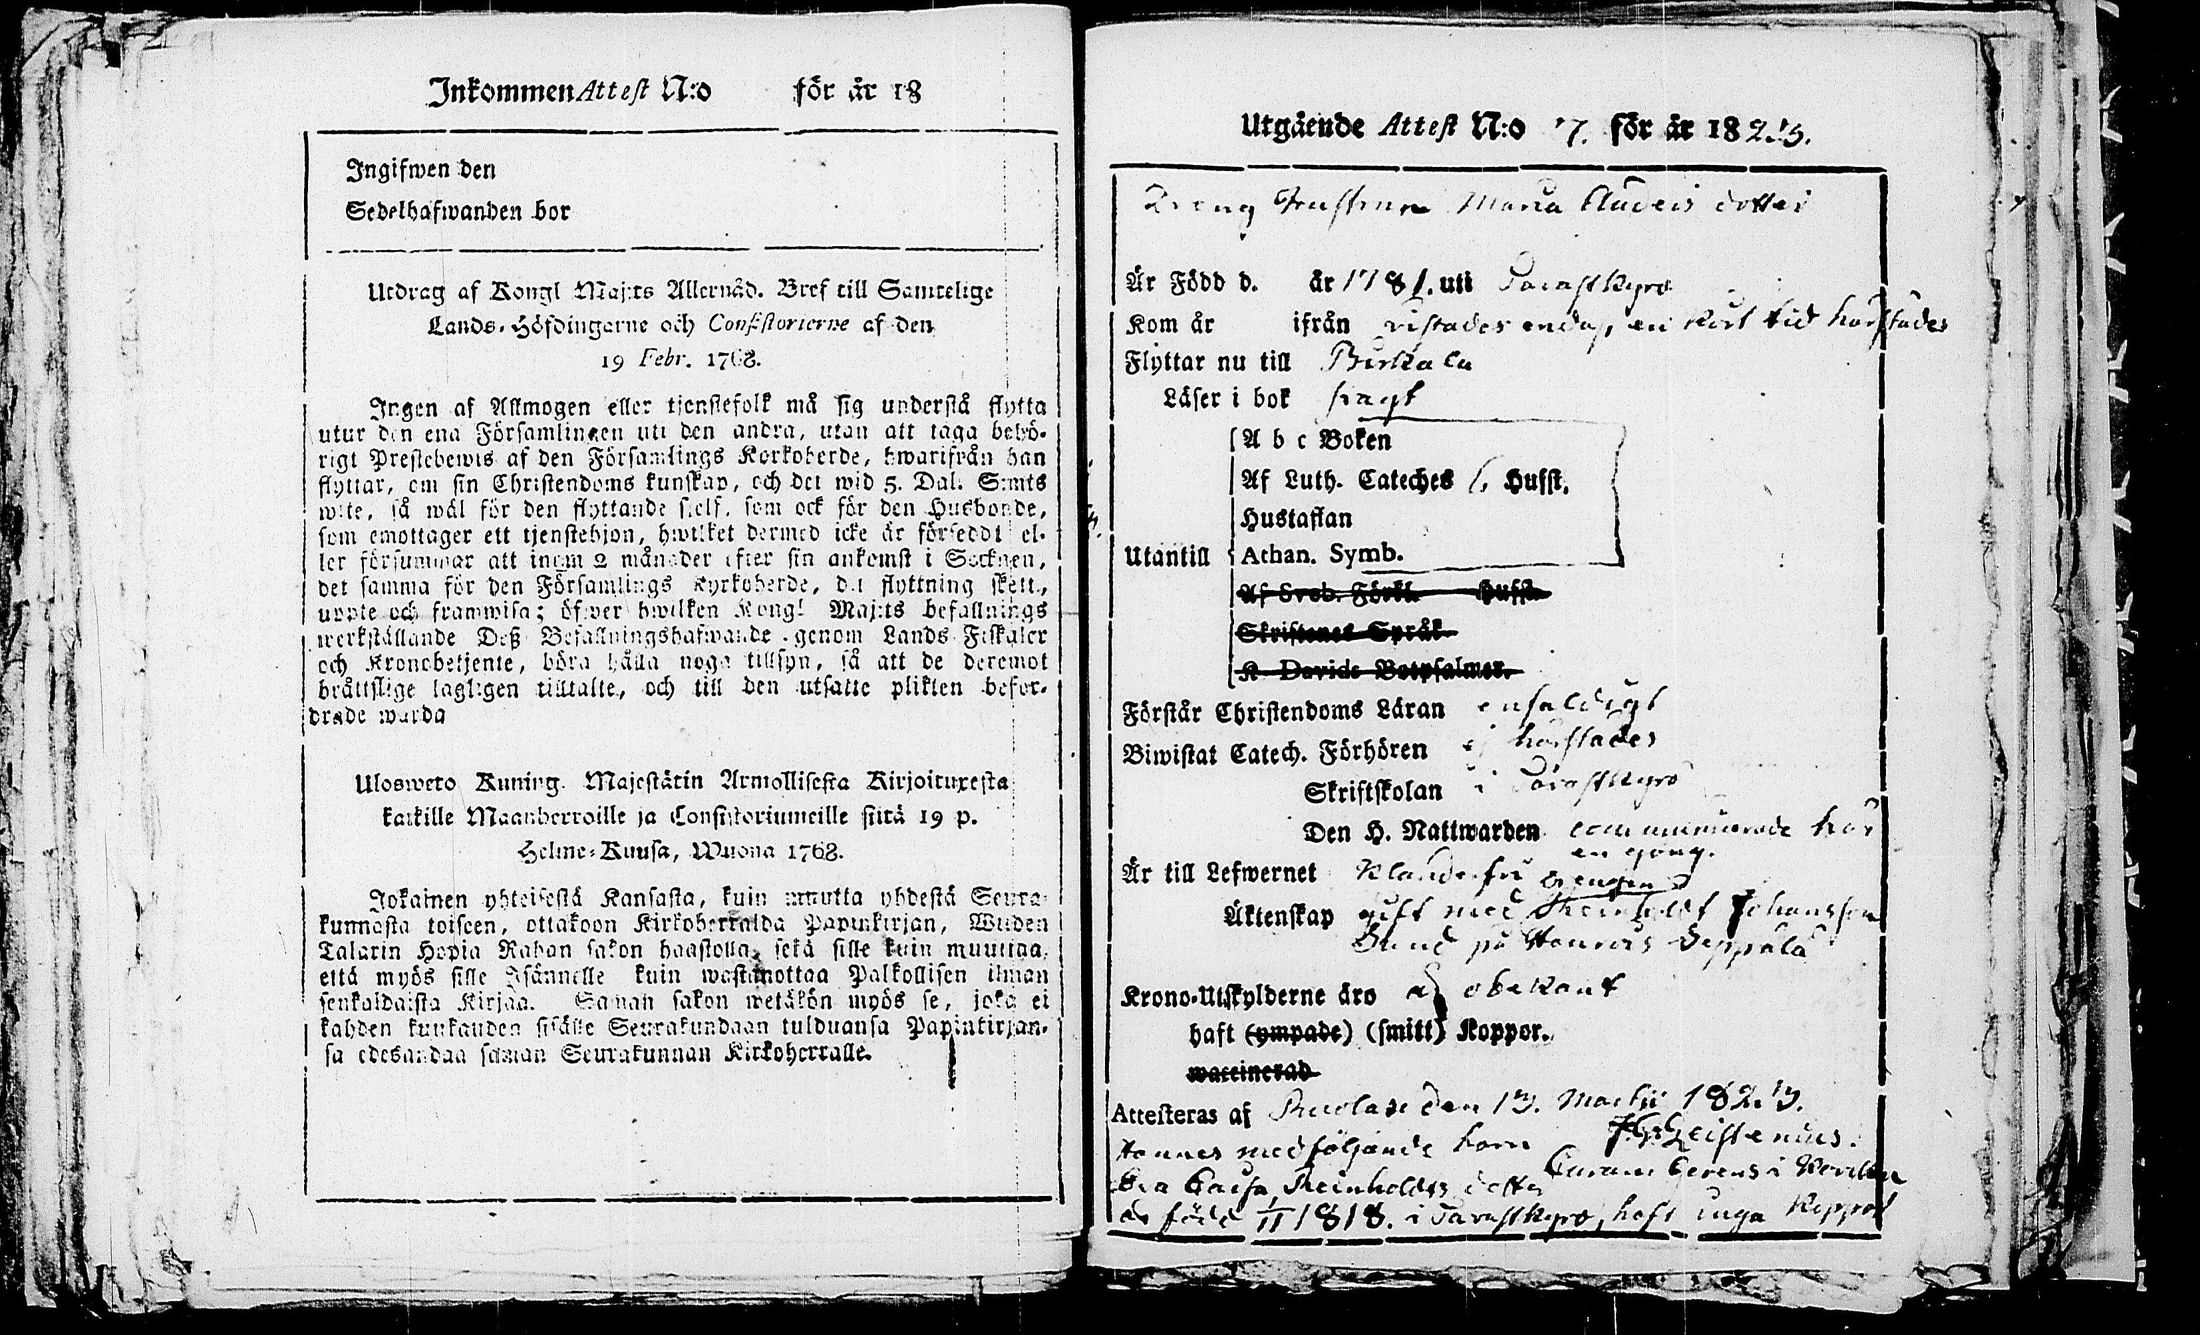 Inkommen Attest N:o för år 18
Ingifwen den
Sedelhafwanden bor
Utdrag af Kongl Maj:ts Allernåd. Bref till Samtelige
Lands-Höfdingarne och Consistorierne af den
19 Febr. 1768.
Ingen af Allmogen eller tjenstefolk må sig understå flytta
utur den ena Församlingen uti den andra, utan att taga behö-
rigt Prestebewis af den Församlings Kyrkoherde, hwarifrån han
flyttar, om sin Christendoms kunskap, och det wid 5. Dal. S:mts
wite, så wäl för den flyttande sielf, som ock för den Husbonde,
som emottager ett tjenstehjon, hwilket dermed icke är försedt el-
ler försummar att inom 2 månader efter sin ankomst i Socknen,
det samma för den Församlings Kyrkoherde, dit flyttning skett,
uppte och framwisa; öfwer hwilken Kongl Maj:ts befallnings
werkställande Deß Befallningshafwande genom Lands Fiskaler
och Kronobetjente, böra hålla noga tillsyn, så att de deremot
bråttslige lagligen tilltalte, och till den utsatte plikten befor-
drade warda
Uloswero Kuning. Majestätin Armollisesta Kirjoituxesta
kaikille Maanherroille ja Consistoriumeille siitä 19 p.
Helme-Kuusa, Wuona 1768.
Jokainen yhteisestä Kansasta, kuin muutta yhdestä Seura-
kunnasta toiseen, ottakoon Kirkoherralda Papinkirjan, Wuden
Talarin Hopia Rahan sakon haastolla, sekä sille kuin muuttaa,
että myös sille Isännelle kuin wastanottaa Palkollisen ilman
senkaldaista Kirjaa. Saman sakon wetäkön myös se, joka ei
kahden kuukauden sisälle Seurakundaan tulduansa Papinkirjan-
sa edesandaa saman Seurakunnan Kirkoherralle.
Utgående Attest N:o 7. för år 1823.
Dreng hustrun Maria Anders dotter
Är Född d. år 1781. uti Tavastkyro
Kom år ifrån vistades endast en kort tid härstädes
Flyttar nu till Birkala
Läser i bok svagt
A b c Boken
Af Luth. Cateches Hufst.
Hustaflan
Utantill Athan. Symb.
Af Sveb. Förkl. Hufst.
Skriftenes Språk
K Davids Botpsalmer.
Förstår Christendoms Läran enfaldigt
Biwistat Catech. Förhören ej härstädes
Skriftskolan i Tavastkyro
Den H. Nattwarden communicerade här
en gång.
Är till Lefwernet klanderfri
drengen
Äktenskap gift med Reinholdt Johansson
Sund på Heppälä
Krono-Utskylderne äro obekant
haft (ympade) (smitt) Koppor.
waccinerad
Attesteras af Ruolax den 13. Martii 1823.
Hennes medföljande barn
Curam Gerens i
Eva Caisa Reinholds dotter
är född 1/11 1818. i Tavastkyro, haft inga Koppor